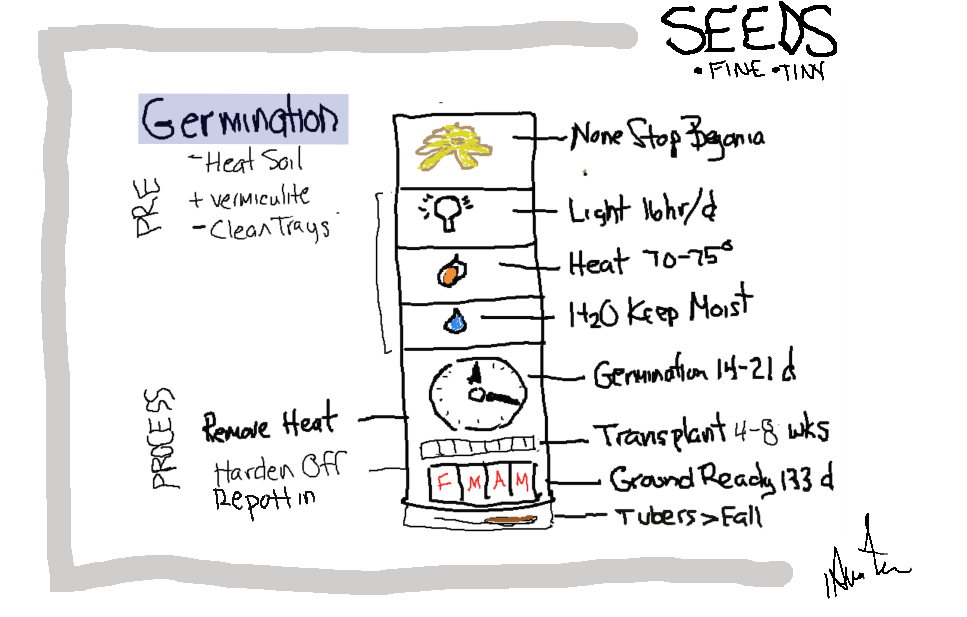 SEEDS
• FINE • TINY
Germination
- Heat Soil
+ vermiculite
- Clean Trays
PRE
None Stop Begonia
Light 16hr/d
Heat 70-75°
H2O Keep Moist
Germination 14-21 d
PROCESS
Remove Heat
Transplant 4-8 wks
Harden Off
Repottin
F M A M
Ground Ready 133 d
Tubers > Fall